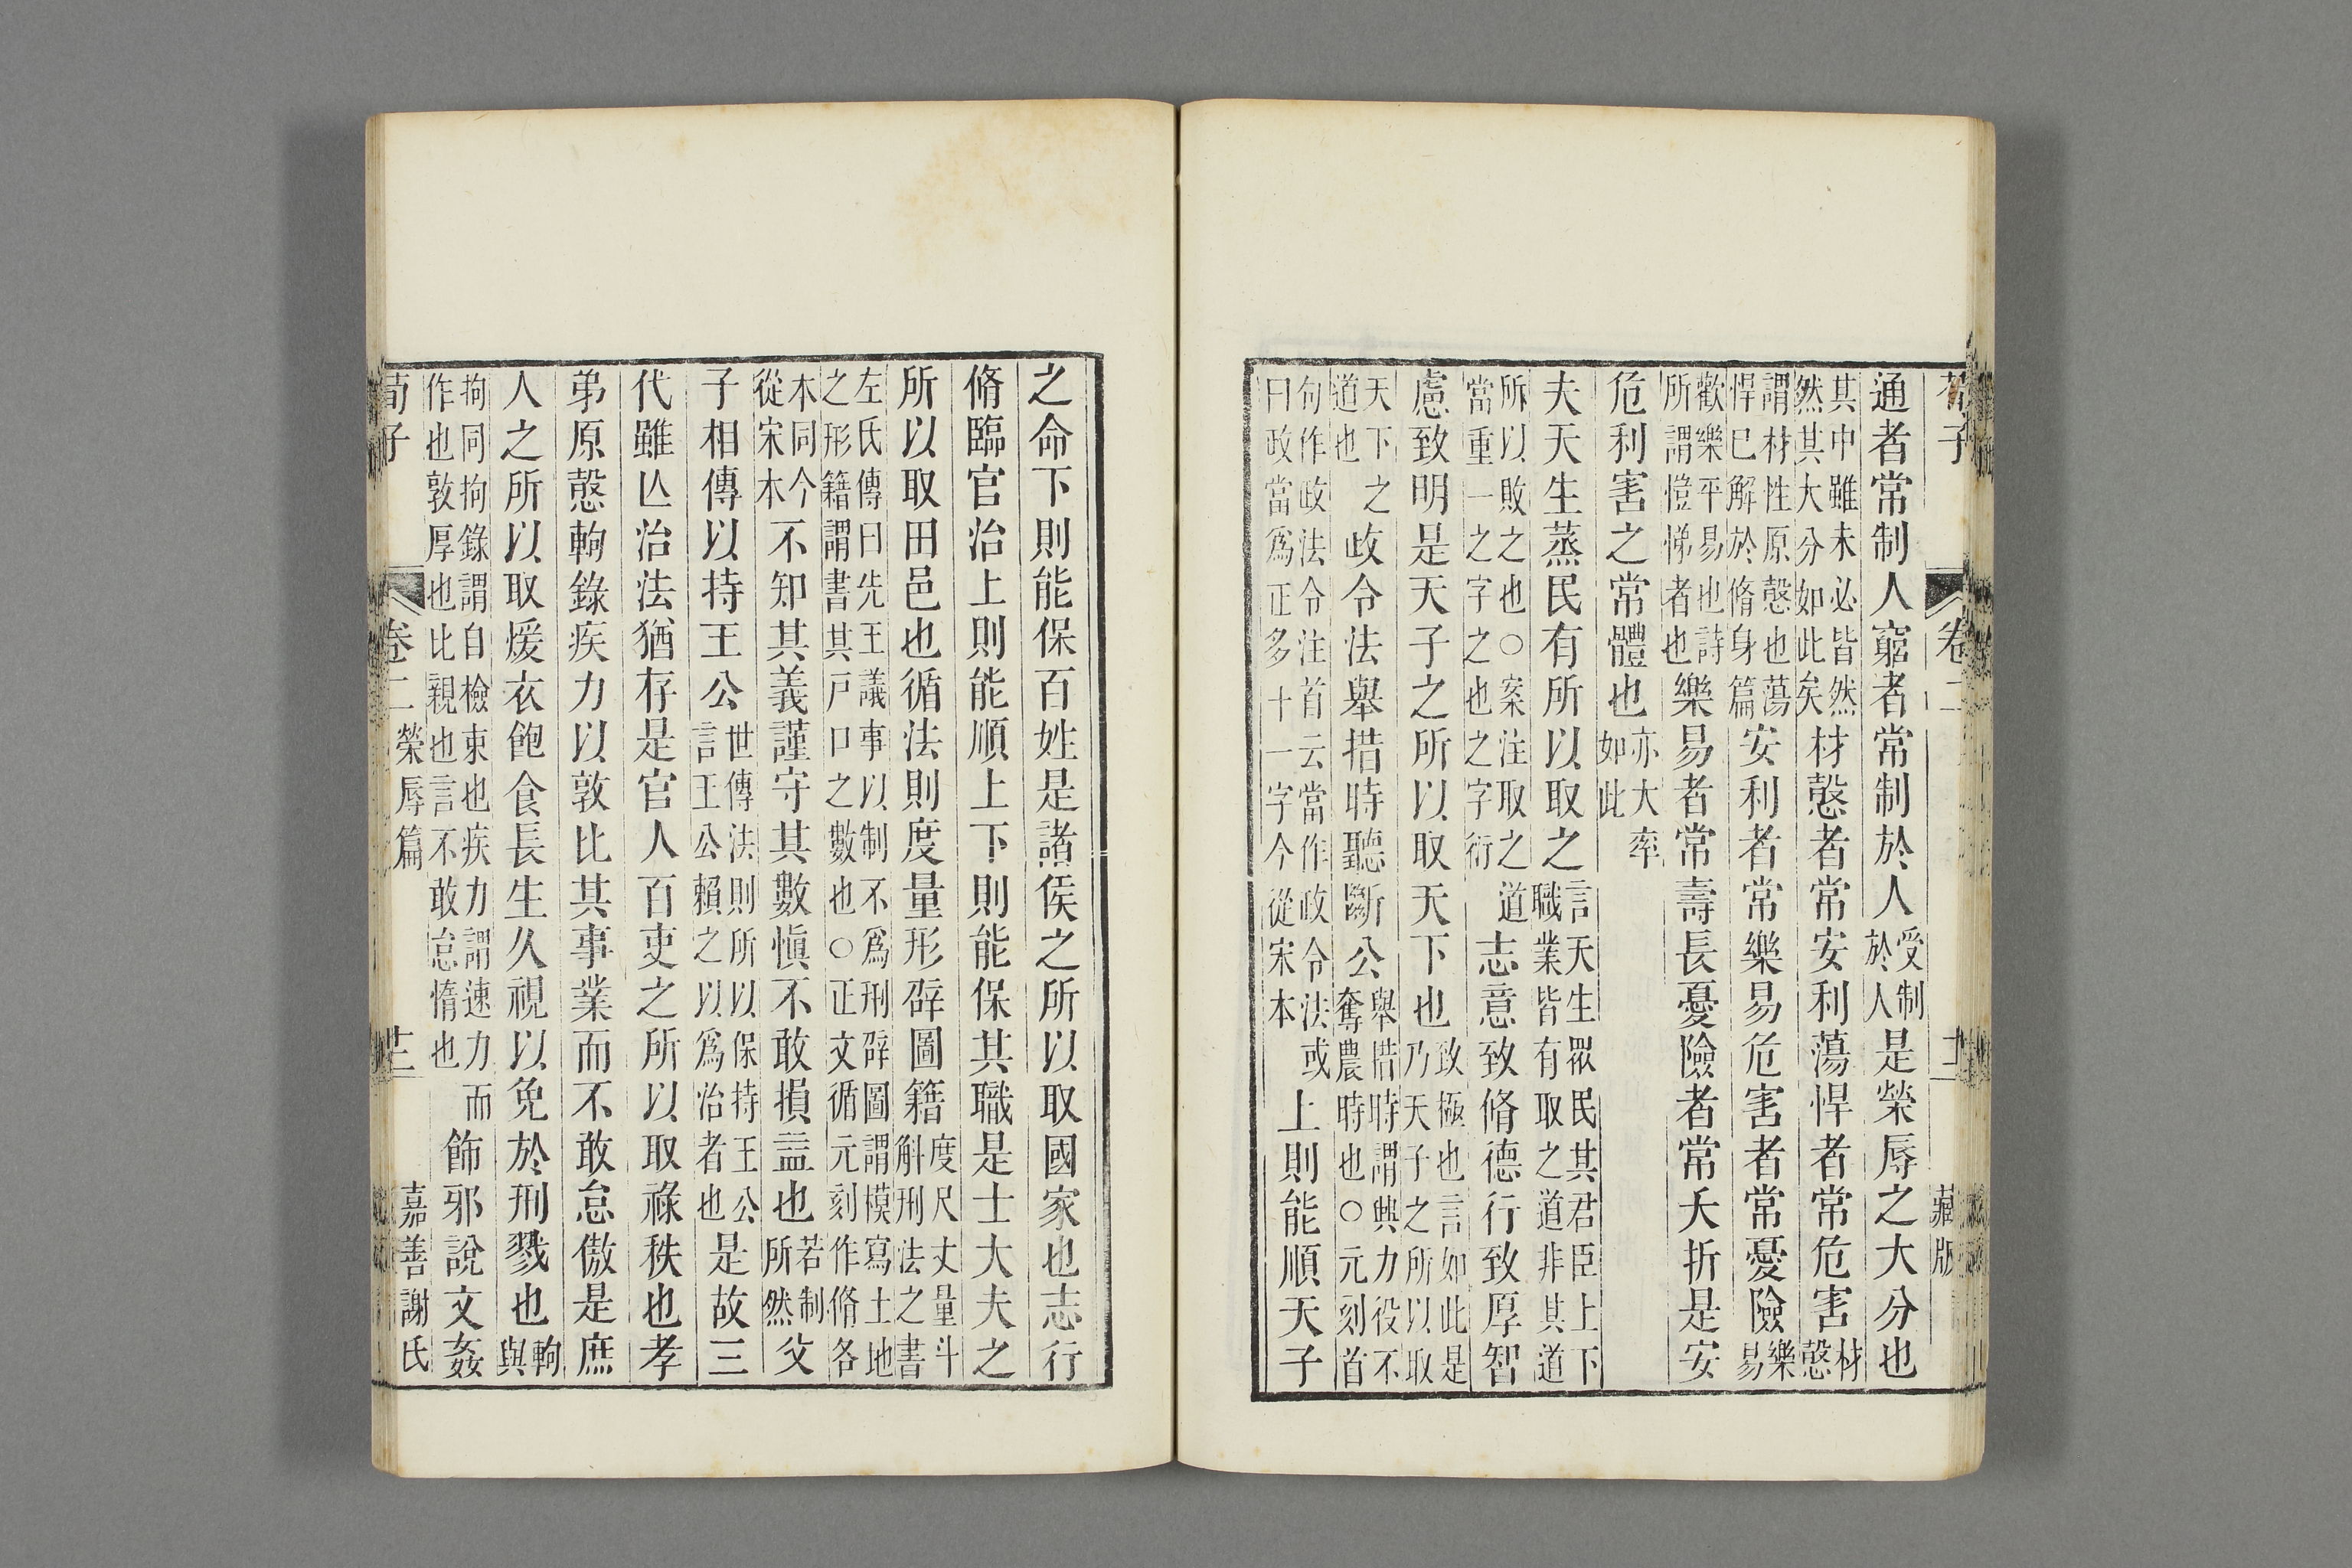 荀子 卷二 十二 藏版
通者常制人窮者常制於人受制於人是榮辱之大分也
其中雖未必皆然然其大分如此矣材愨者常安利蕩悍者常危害材愨
謂材性原愨也蕩悍已解於脩身篇安利者常樂易危害者常憂險樂易
歡樂平易也詩所謂愷悌者也樂易者常壽長憂險者常夭折是安
危利害之常體也亦大率如此
夫天生蒸民有所以取之言天生眾民其君臣上下職業皆有取之道非其道
所以敗之也○案注取之當重一之字之也之字衍道志意致脩德行致厚智
慮致明是天子之所以取天下也致極也言如此是乃天子之所以取
天下之道也政令法舉措時聽斷公舉措時謂興力役不奪農時也○元刻首
句作政法令注首云當作政令法或曰政當爲正多十一字今從宋本上則能順天子
之命下則能保百姓是諸侯之所以取國家也志行
脩臨官治上則能順上下則能保其職是士大夫之
所以取田邑也循法則度量形辟圖籍度尺丈量斗斛刑法之書
左氏傳曰先王議事以制不爲刑辟圖謂模寫土地之形籍謂書其戸口之數也○正文循元刻作脩各
本同今從宋本不知其義謹守其數慎不敢損益也若制所然父
子相傳以持王公世傳法則所以保持王公言王公賴之以爲治者也是故三
代雖亾治法猶存是官人百吏之所以取祿秩也孝
弟原愨軥錄疾力以敦比其事業而不敢怠傲是庶
人之所以取煖衣飽食長生久視以免於刑戮也軥與
拘同拘錄謂自檢束也疾力謂速力而作也敦厚也比親也言不敢怠惰也飾邪說文姦
荀子 卷二 榮辱篇 十三 嘉善謝氏